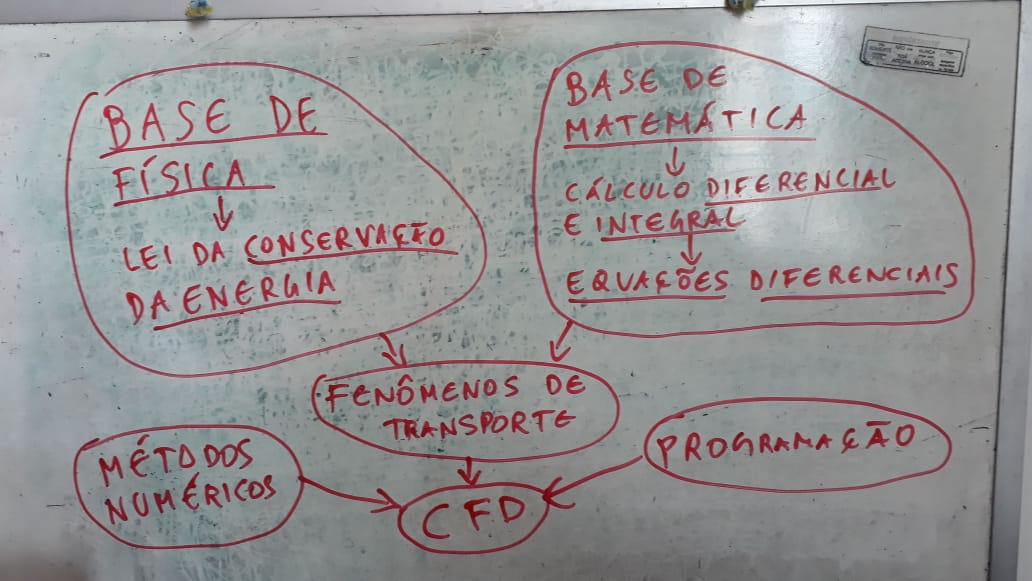 BASE DE
FÍSICA
LEI DA CONSERVAÇÃO
DA ENERGIA
BASE DE
MATEMÁTICA
CÁLCULO DIFERENCIAL
E INTEGRAL
EQUAÇÕES DIFERENCIAIS
FENÔMENOS DE
TRANSPORTE
MÉTODOS
NUMÉRICOS
PROGRAMAÇÃO
CFD